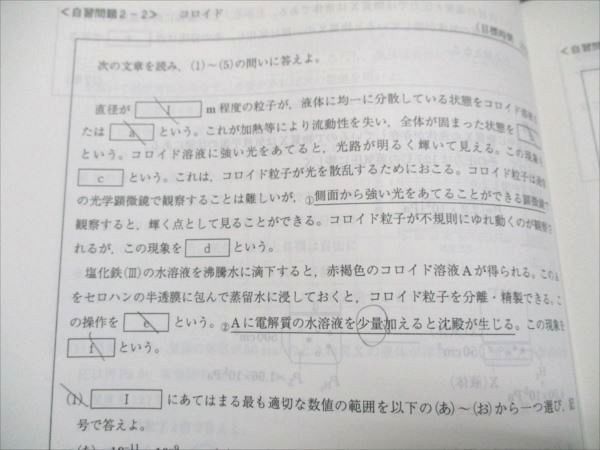 <自習問題2-2> コロイド
(目標時間
<自習
次の文章を読み、(1)〜(5)の問いに答えよ。
直径が I m程度の粒子が、液体に均一に分散している状態をコロイド溶液
たは a という。これが加熱等により流動性を失い、全体が固まった状態を
という。コロイド溶液に強い光をあてると、光路が明るく輝いて見える。この現象
c という。これは、コロイド粒子が光を散乱するためにおこる。コロイド粒子は
の光学顕微鏡で観察することは難しいが、①側面から強い光をあてることができる顕微鏡で
観察すると、輝く点として見ることができる。コロイド粒子が不規則にゆれ動くのが観察
れるが、この現象を d という。
塩化鉄(Ⅲ)の水溶液を沸騰水に滴下すると、赤褐色のコロイド溶液Aが得られる。このA
をセロハンの半透膜に包んで蒸留水に浸しておくと、コロイド粒子を分離・精製できる。こ
の操作を e という。②Aに電解質の水溶液を少量加えると沈殿が生じる。この現象を
f という。
(1) I にあてはまる最も適切な数値の範囲を以下の(あ)〜(お)から一つ選び、記
号で答えよ。